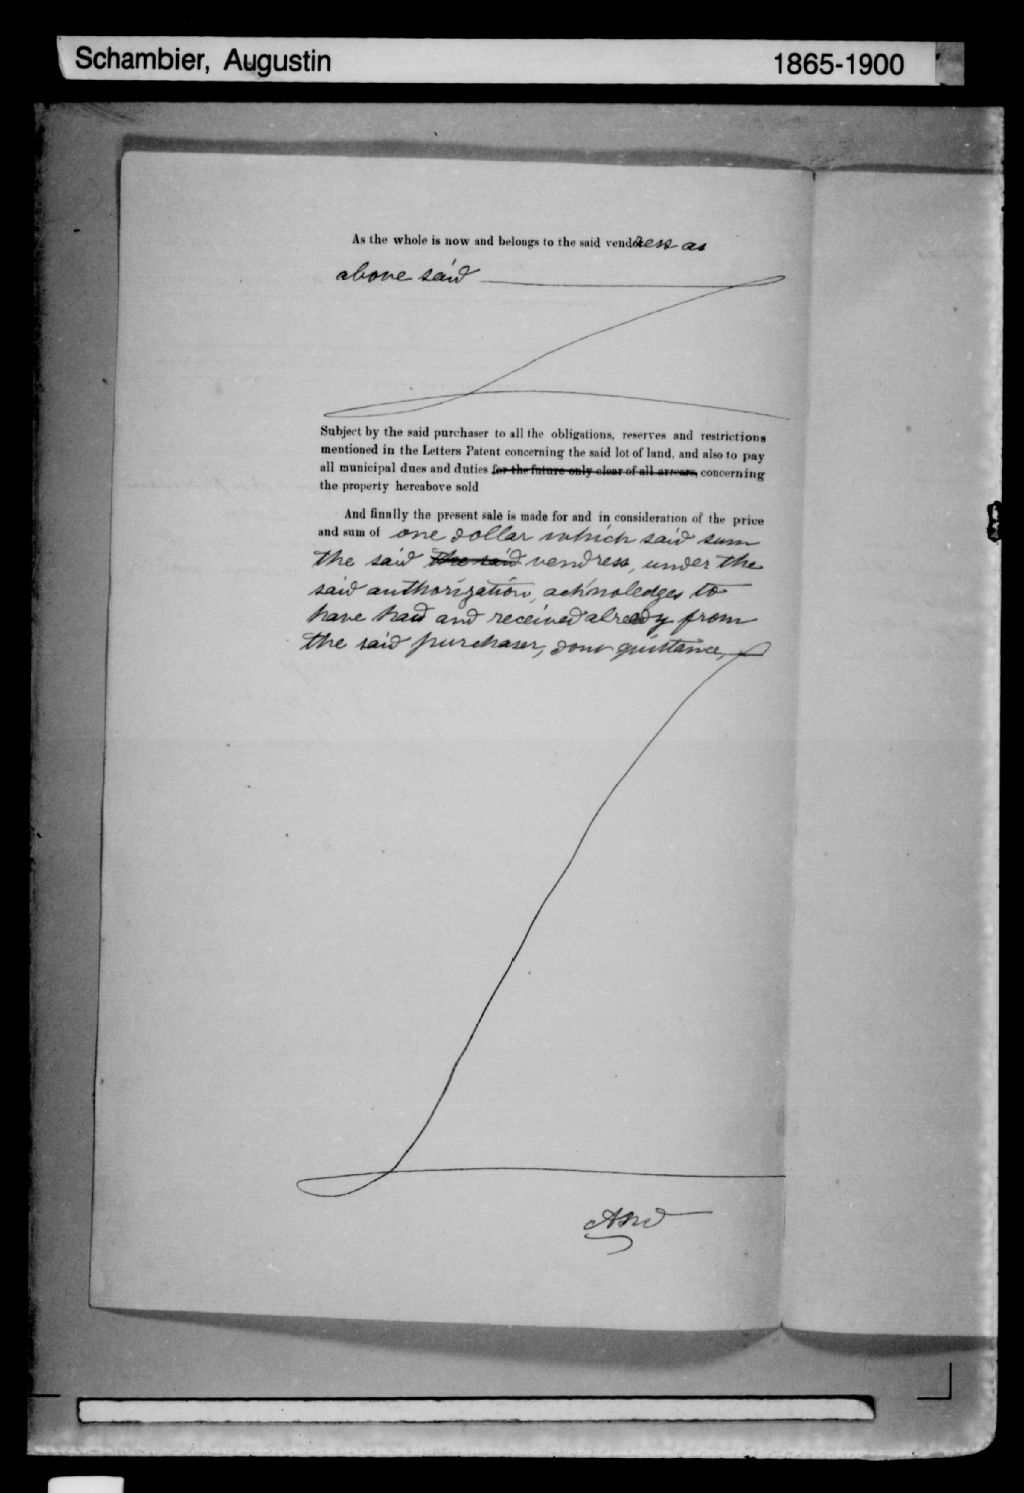 Schambier, Augustin 1865-1900
As the whole is now and belongs to the said vendress as
above said
Subject by the said purchaser to all the obligations, reserves and restrictions
mentioned in the Letters Patent concerning the said lot of land, and also to pay
all municipal dues and duties for the future only clear of all arrears, concerning
the property hereabove sold
And finally the present sale is made for and in consideration of the price
and sum of one dollar which said sum
the said the said vendress, under the
said authorization, acknoledges to
have had and received already from
the said purchaser, dont quittance,
And